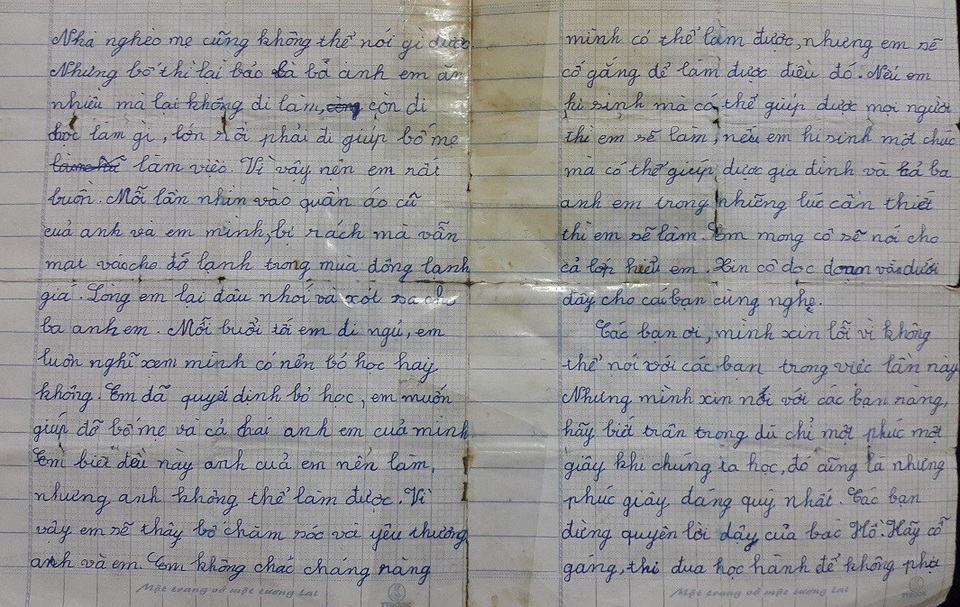 Nhà nghèo mẹ cũng không thể nói gì được
Nhưng bố thì lại bảo là bả anh em ăn
nhiều mà lại không đi làm, còn đi
học làm gì, lớn rồi phải đi giúp bố mẹ
làm việc. Vì vậy nên em rất
buồn. Mỗi lần nhìn vào quần áo cũ
của anh va em mình, bị rách mà vẫn
mạt vàocho đỡ lạnh trong mùa đông lạnh
giá. Lòng em lại đâu nhói và xót xa cho
ba anh em. Mỗi buổi tối em đi ngủ, em
luôn nghĩ xem mình có nên bỏ học hay
không. Em đã quyết định bỏ học, em muốn
giúp đỡ bố mẹ va cả hai anh em của mình
Em biết đều này anh của em nên làm,
nhưng anh không thể làm được. Vì
vậy em sẽ thây bố chăm sóc và yêu thương
anh và em. Em không chắc chắng rằng
Một trang vở một tương lai
mình có thể làm được, nhưng em sẽ
cố gắng để làm được điều đó. Nếu em
hi sinh mà có thể giúp được mọi người
thì em sẽ làm, nếu em hi sinh một chúc
mà có thể giúp được gia đình và cả ba
anh em trong những lúc cần thiết
thì em sẽ làm. Em mong cô sẽ nói cho
cả lớp hiểu em. Xin cô đọc đoạn văn dưới
đây cho các bạn cùng nghe.
Các bạn ơi, mình xin lỗi vì không
thể nói với các bạn trong việc lần này
Nhưng mình xin nói với các bạn rằng,
hãy biết trân trọng dù chỉ một phúc một
giây khi chúng ta học, đó cũng là nhưng
phúc giây đáng quý nhất. Các bạn
đừng quyên lời dậy của bác Hồ. Hãy cố
gáng, thi đua học hành để không phụ
Một trang vở một tương lai